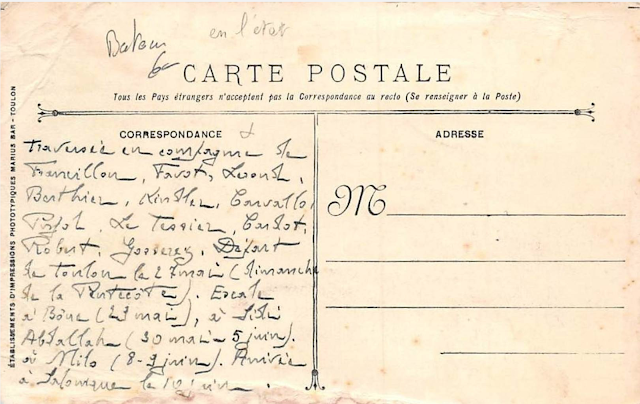 en l'état
Bateau
6-
CARTE POSTALE
Tous les Pays étrangers n'acceptent pas la Correspondance au recto (Se renseigner à la Poste)
CORRESPONDANCE
ADRESSE
M
Traversée en compagnie de
Francillon, Favot,
Berthier, Kindler, Carvallo,
Pujol, Le Tessier, Cardot,
Robert, Départ
de Toulon le 27 mai (dimanche
de la Pentecôte). Escale
à Bône (29 mai), à Sidi
Abdallah (30 mai - 5 juin).
à Milo (8-9 juin). Arrivée
à Salonique le 10 juin.
ÉTABLISSEMENTS D'IMPRESSIONS PHOTOTYPIQUES MARIUS BAR - TOULON